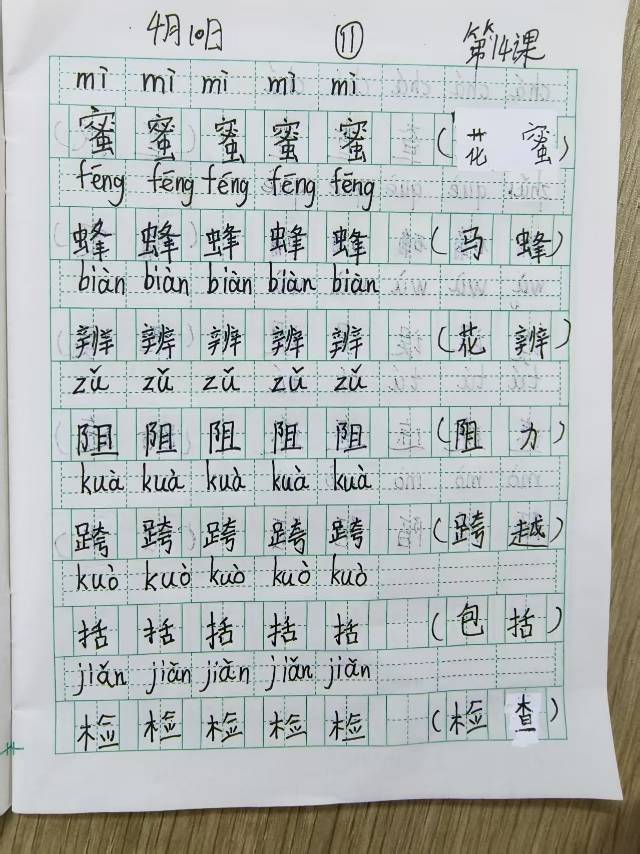 4月10日 ⑪ 第14课
mì mì mì mì mì
蜜 蜜 蜜 蜜 蜜 (花 蜜)
fēng fēng fēng fēng fēng
蜂 蜂 蜂 蜂 蜂 (马 蜂)
biàn biàn biàn biàn biàn
辨 辨 辨 辨 辨 (花 辨)
zǔ zǔ zǔ zǔ zǔ
阻 阻 阻 阻 阻 (阻 力)
kuà kuà kuà kuà kuà
跨 跨 跨 跨 跨 (跨 越)
kuò kuò kuò kuò kuò
括 括 括 括 括 (包 括)
jiǎn jiǎn jiǎn jiǎn jiǎn
检 检 检 检 检 (检 查)